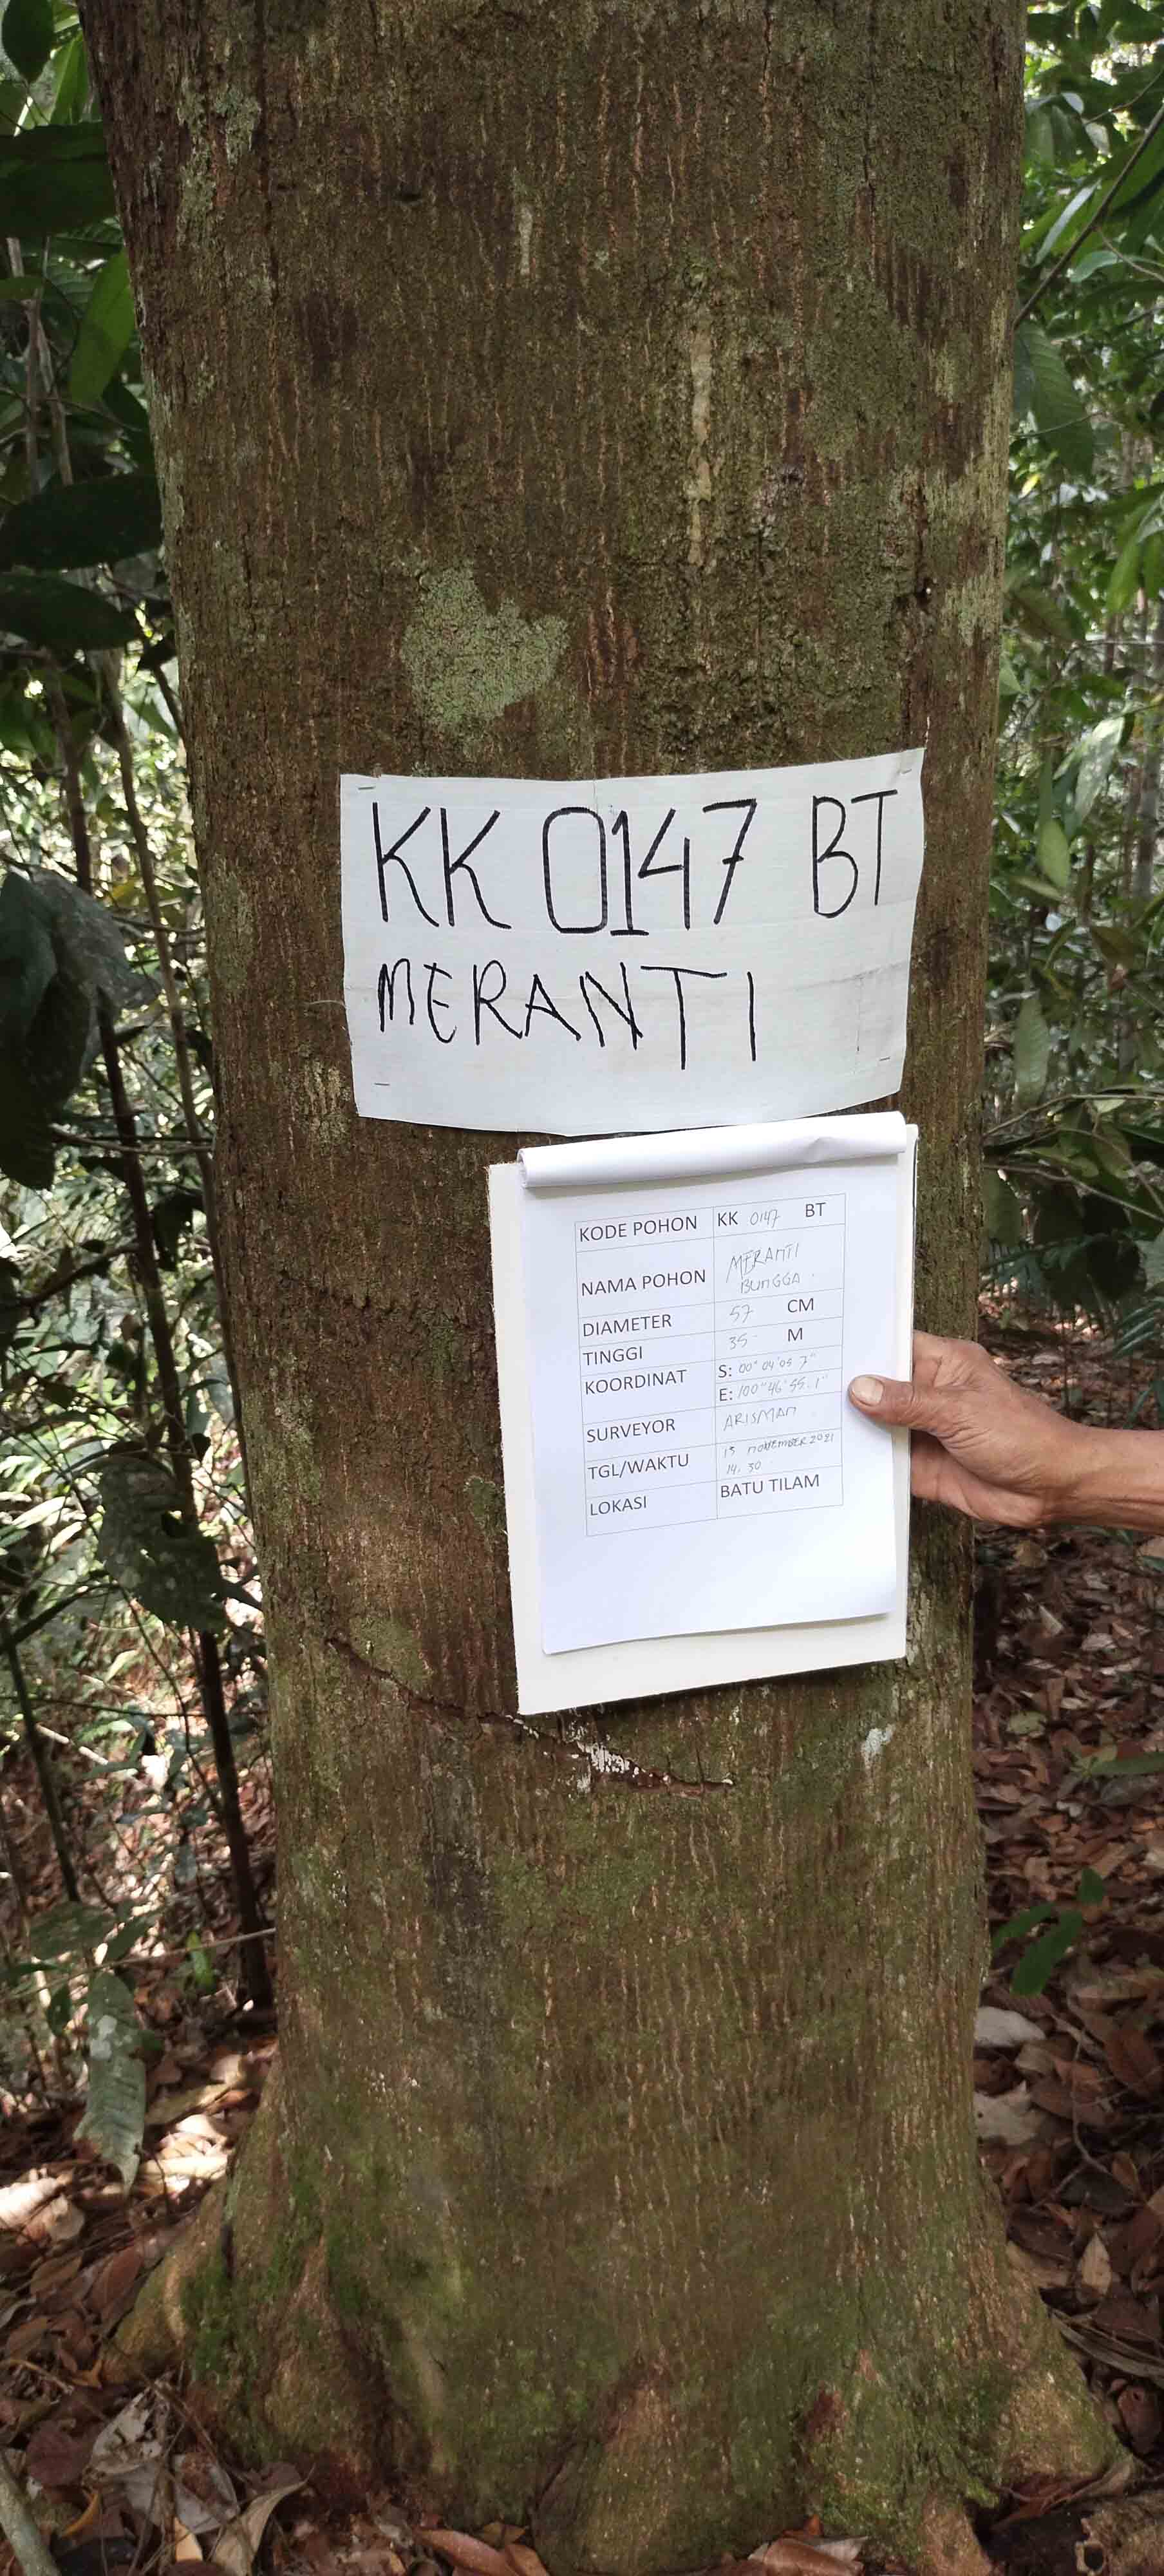 KK 0147 BT
MERANTI
KODE POHON KK 0147 BT
NAMA POHON MERANTI
BUNGGA
DIAMETER 57 CM
TINGGI 35 M
KOORDINAT S: 00° 04' 05.7"
E: 100° 46' 55.1"
SURVEYOR ARISMAN
TGL/WAKTU 15 NOVEMBER 2021
14.30
LOKASI BATU TILAM